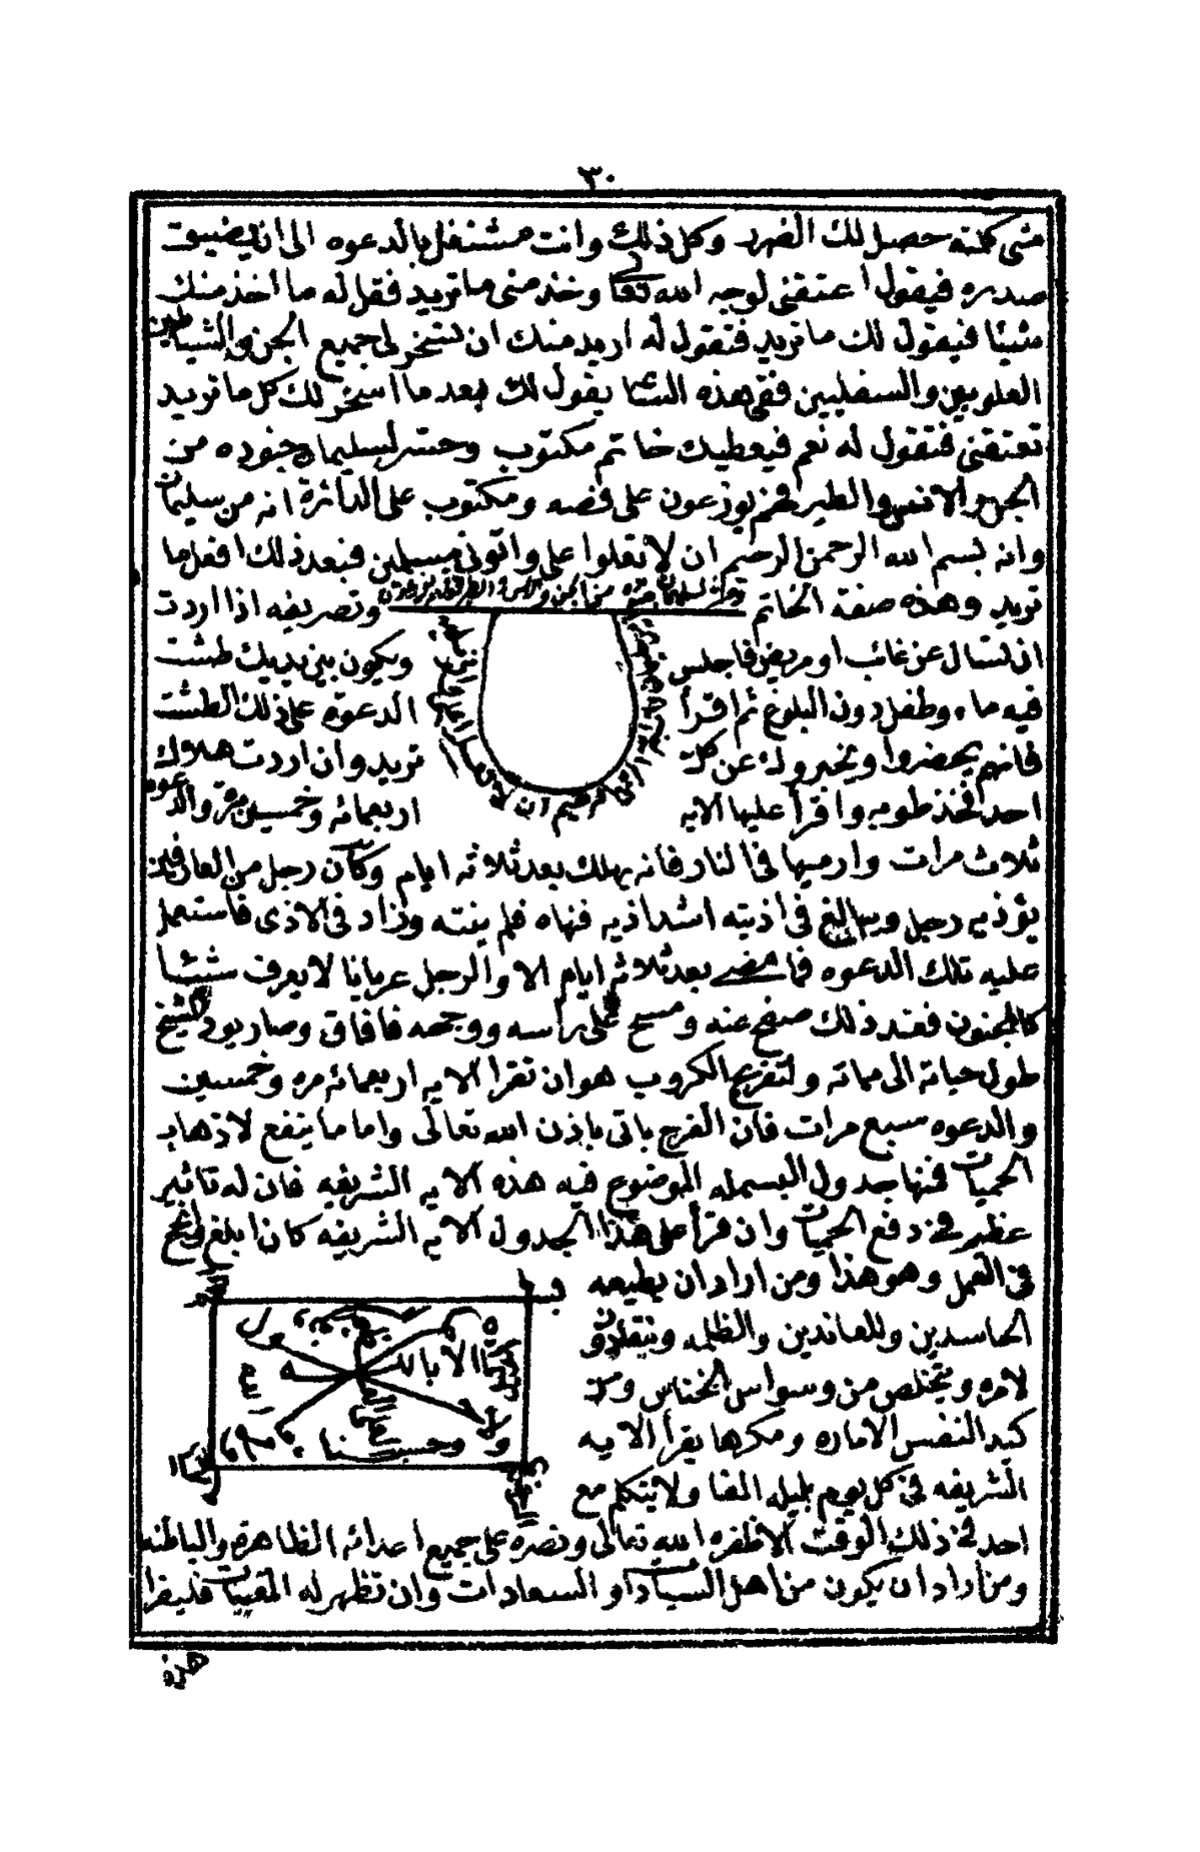 ٣٠
متى كلمته حصل لك الضرر وكل ذلك وانت مشتغل بالدعوه الى ان يضيق
صدره فيقول اعتقنى لوجه الله تعالى وخذ منى ما تريد فقل له ما اخذ منك
شيئا فيقول لك ما تريد فتقول له اريد منك ان تسخر لى جميع الجن والشياطين
العلويين والسفليين ففى هذه يقول لك بعد ما اسخر لك كل ما تريد
تعتقنى فتقول له نعم فيعطيك خاتم مكتوب وحشر لسليمان جنوده من
الجن والانس والطير فهم يوزعون على فصه ومكتوب على الدائرة انه من سليمان
وانه بسم الله الرحمن الرحيم ان لا تعلوا على واتونى مسلمين فبعد ذلك افعل ما
تريد وهذه صفة الخاتم وتصريفه اذا اردت
ان تسال عن غائب او مريض فاجلس ويكون بين يديك طشت
فيه ماء وطفل دون البلوغ ثم اقرأ الدعوة على ذلك الطشت
فانهم يحضروا ويخبروك عن كل تريد وان اردت هلاك
احد فخذ طوبه واقرأ عليها الايه اربعمائه وخمسين مرة والدعوه
ثلاث مرات وارميها فى النار فانه يهلك بعد ثلاثه ايام وكان رجل من العارفين
يؤذيه رجل ويبالغ فى اذيته اشد اذيه فنهاه فلم ينته وزاد فى الاذى فاستعمل
عليه تلك الدعوه فما مضى بعد ثلاثه ايام الا والرجل عريانا لا يعرف شيئا
كالمجنون فعند ذلك صفح عنه ومسح على راسه ووجهه فافاق وصار يود الشيخ
طول حياته الى مماته ولتفريج الكروب هو ان تقرا الايه اربعمائه مره وخمسين
والدعوه سبع مرات فان الفرج ياتى باذن الله تعالى واما ما ينفع لاذهاب
الحميات فمنها جدول البسمله الموضوع فيه هذه الايه الشريفه فان له تاثير
عظيم فى دفع الحميات وان قرأ على هذا الجدول الايه الشريفه كان ابلغ وانجح
فى العمل وهو هذا ومن اراد ان يطيعه
الحاسدين وللعاندين والظلمه وينقادون
لامره ويتخلص من وسواس الخناس و
كيد النفس الاماره ومكرها يقرأ الايه
الشريفه فى كل يوم بليله الفا ولا يتكلم مع
وحسبنا
احد فى ذلك الوقت الا ظفره الله تعالى ونصره على جميع اعدائه الظاهرة والباطنه
ومن اراد ان يكون من اهل السيادات او السعادات وان تظهر له المغيبات فليقرا
هذه